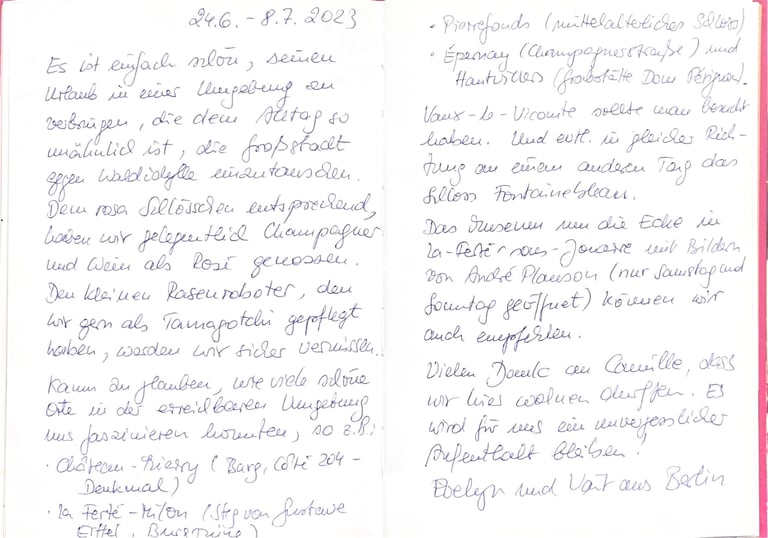 24.6. - 8.7. 2023
Es ist einfach schön, seinen
Urlaub in einer Umgebung zu
verbringen, die dem Alltag so
unähnlich ist, die Großstadt
gegen Waldidylle einzutauschen.
Dem rosa Schlösschen entsprechend,
haben wir gelegentlich Champagner
und Wein als Rosé genossen.
Den kleinen Rasenroboter, den
wir gern als Tamagotchi gepflegt
haben, werden wir sicher vermissen.
Kaum zu glauben, wie viele schöne
Orte in der erreichbaren Umgebung
uns faszinieren konnten, so z.B.:
· Château-Thierry (Burg, Côte 204 -
Denkmal)
· La Ferté-Milon (Steg von Gustave
Eiffel, Burgruine)
· Pierrefonds (mittelalterliches Schloss)
· Épernay (Champagnerstraße) und
Hautvillers (Grabstätte Dom Pérignon).
Vaux-le-Vicomte sollte man besucht
haben. Und evtl. in gleicher Rich-
tung an einem anderen Tag das
Schloss Fontainebleau.
Das Museum um die Ecke in
La-Ferté-sous-Jouarre mit Bildern
von André Planson (nur Samstag und
Sonntag geöffnet) können wir
auch empfehlen.
Vielen Dank an Camille, dass
wir hier wohnen durften. Es
wird für uns ein unvergesslicher
Aufenthalt bleiben!
Evelyn und aus Berlin